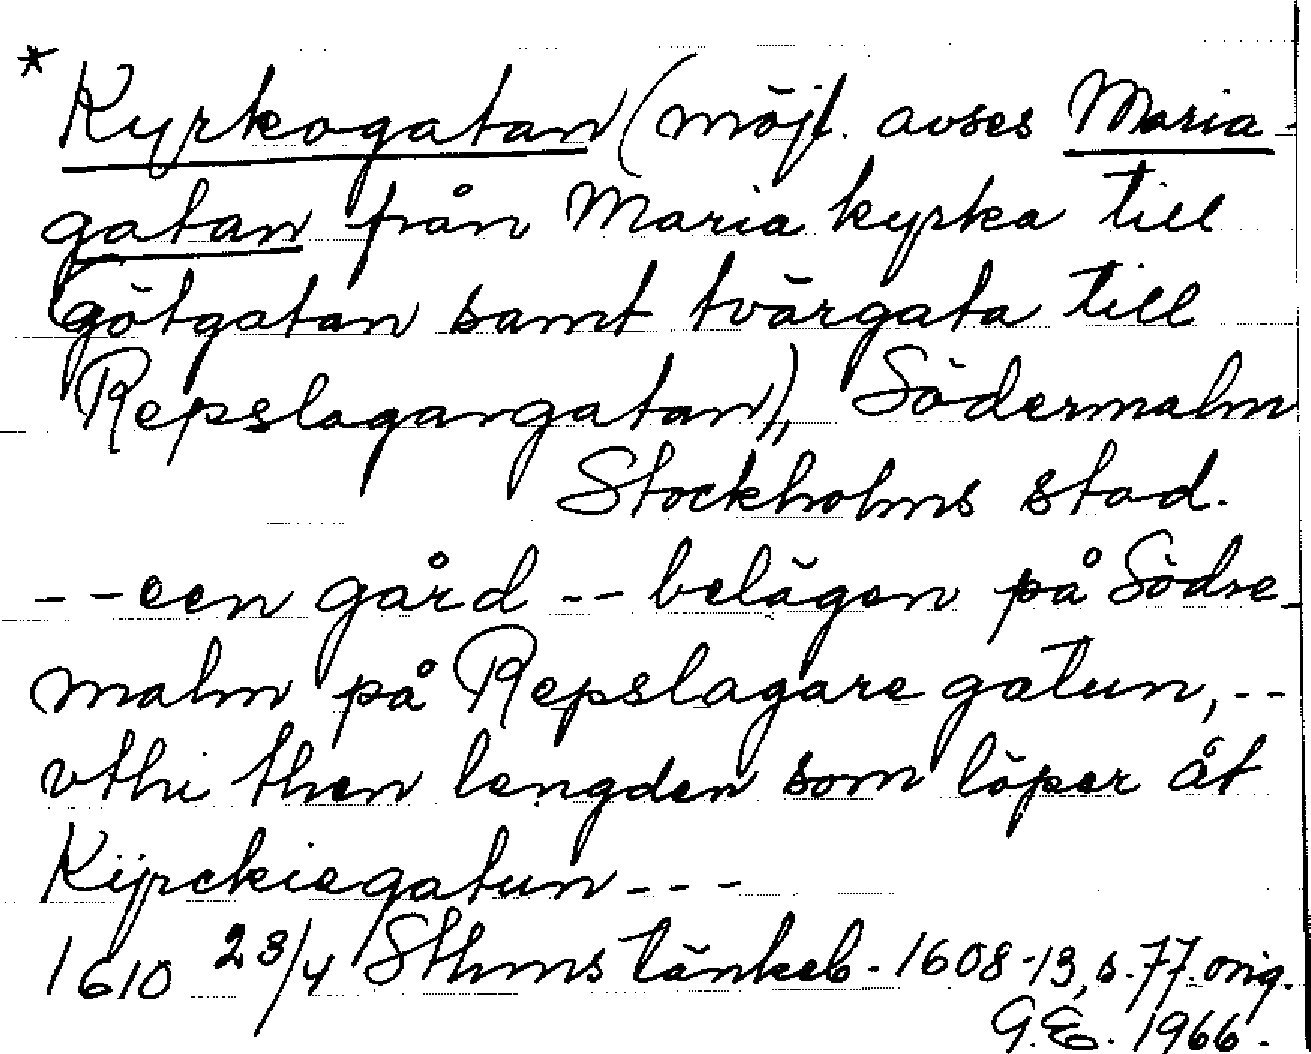 * Kyrkogatan (möjl. avses Maria-
gatan från Maria kyrka till
Götgatan samt tvärgata till
Repslagargatan), Södermalm
Stockholms stad.
-- een gård -- belägen på Södre-
malm på Repslagare gatun, --
vthi then lengden som löper åt
Kijrckiegatun ---
1610 23/4 Sthms tänkeb. 1608-13, s. 77. orig.
G.E. 1966.